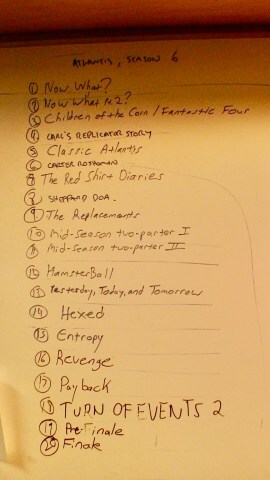 ATLANTIS, SEASON 6
1 Now What?
2 Now What Pt.2?
3 Children of the Corn / Fantastic Four
4 CARL'S REPLICATOR STORY
5 Classic Atlantis
6 CARTER
8 The Red Shirt Diaries
8 SHEPPARD DOA.
9 The Replacements
10 Mid-season two-parter I
11 Mid-season two-parter II
12 HamsterBall
13 Yesterday, Today, and Tomorrow
14 Hexed
15 Entropy
16 Revenge
17 Payback
18 TURN OF EVENTS 2
19 Pre-Finale
20 Finale